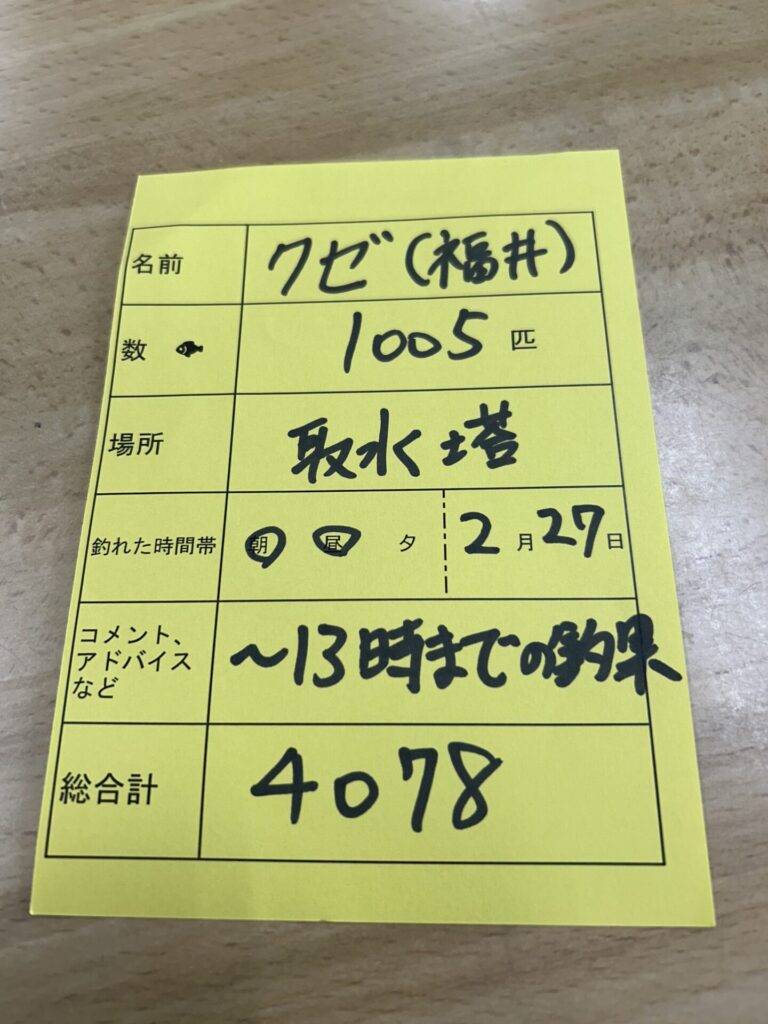 名前 クゼ(福井)
数 1005 匹
場所 取水塔
釣れた時間帯 朝 昼 夕 2月27日
コメント、
アドバイス
など
~13時までの釣果
総合計 4078